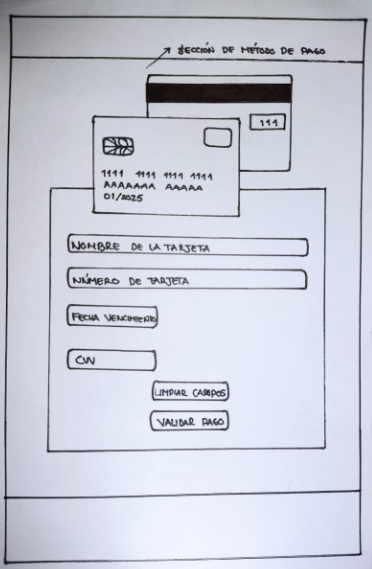 SECCIÓN DE MÉTODO DE PAGO
111
1111 1111 1111 1111
AAAAAAA AAAAA
01/2025
NOMBRE DE LA TARJETA
NÚMERO DE TARJETA
FECHA VENCIMIENTO
CVV
LIMPIAR CAMPOS
VALIDAR PAGO